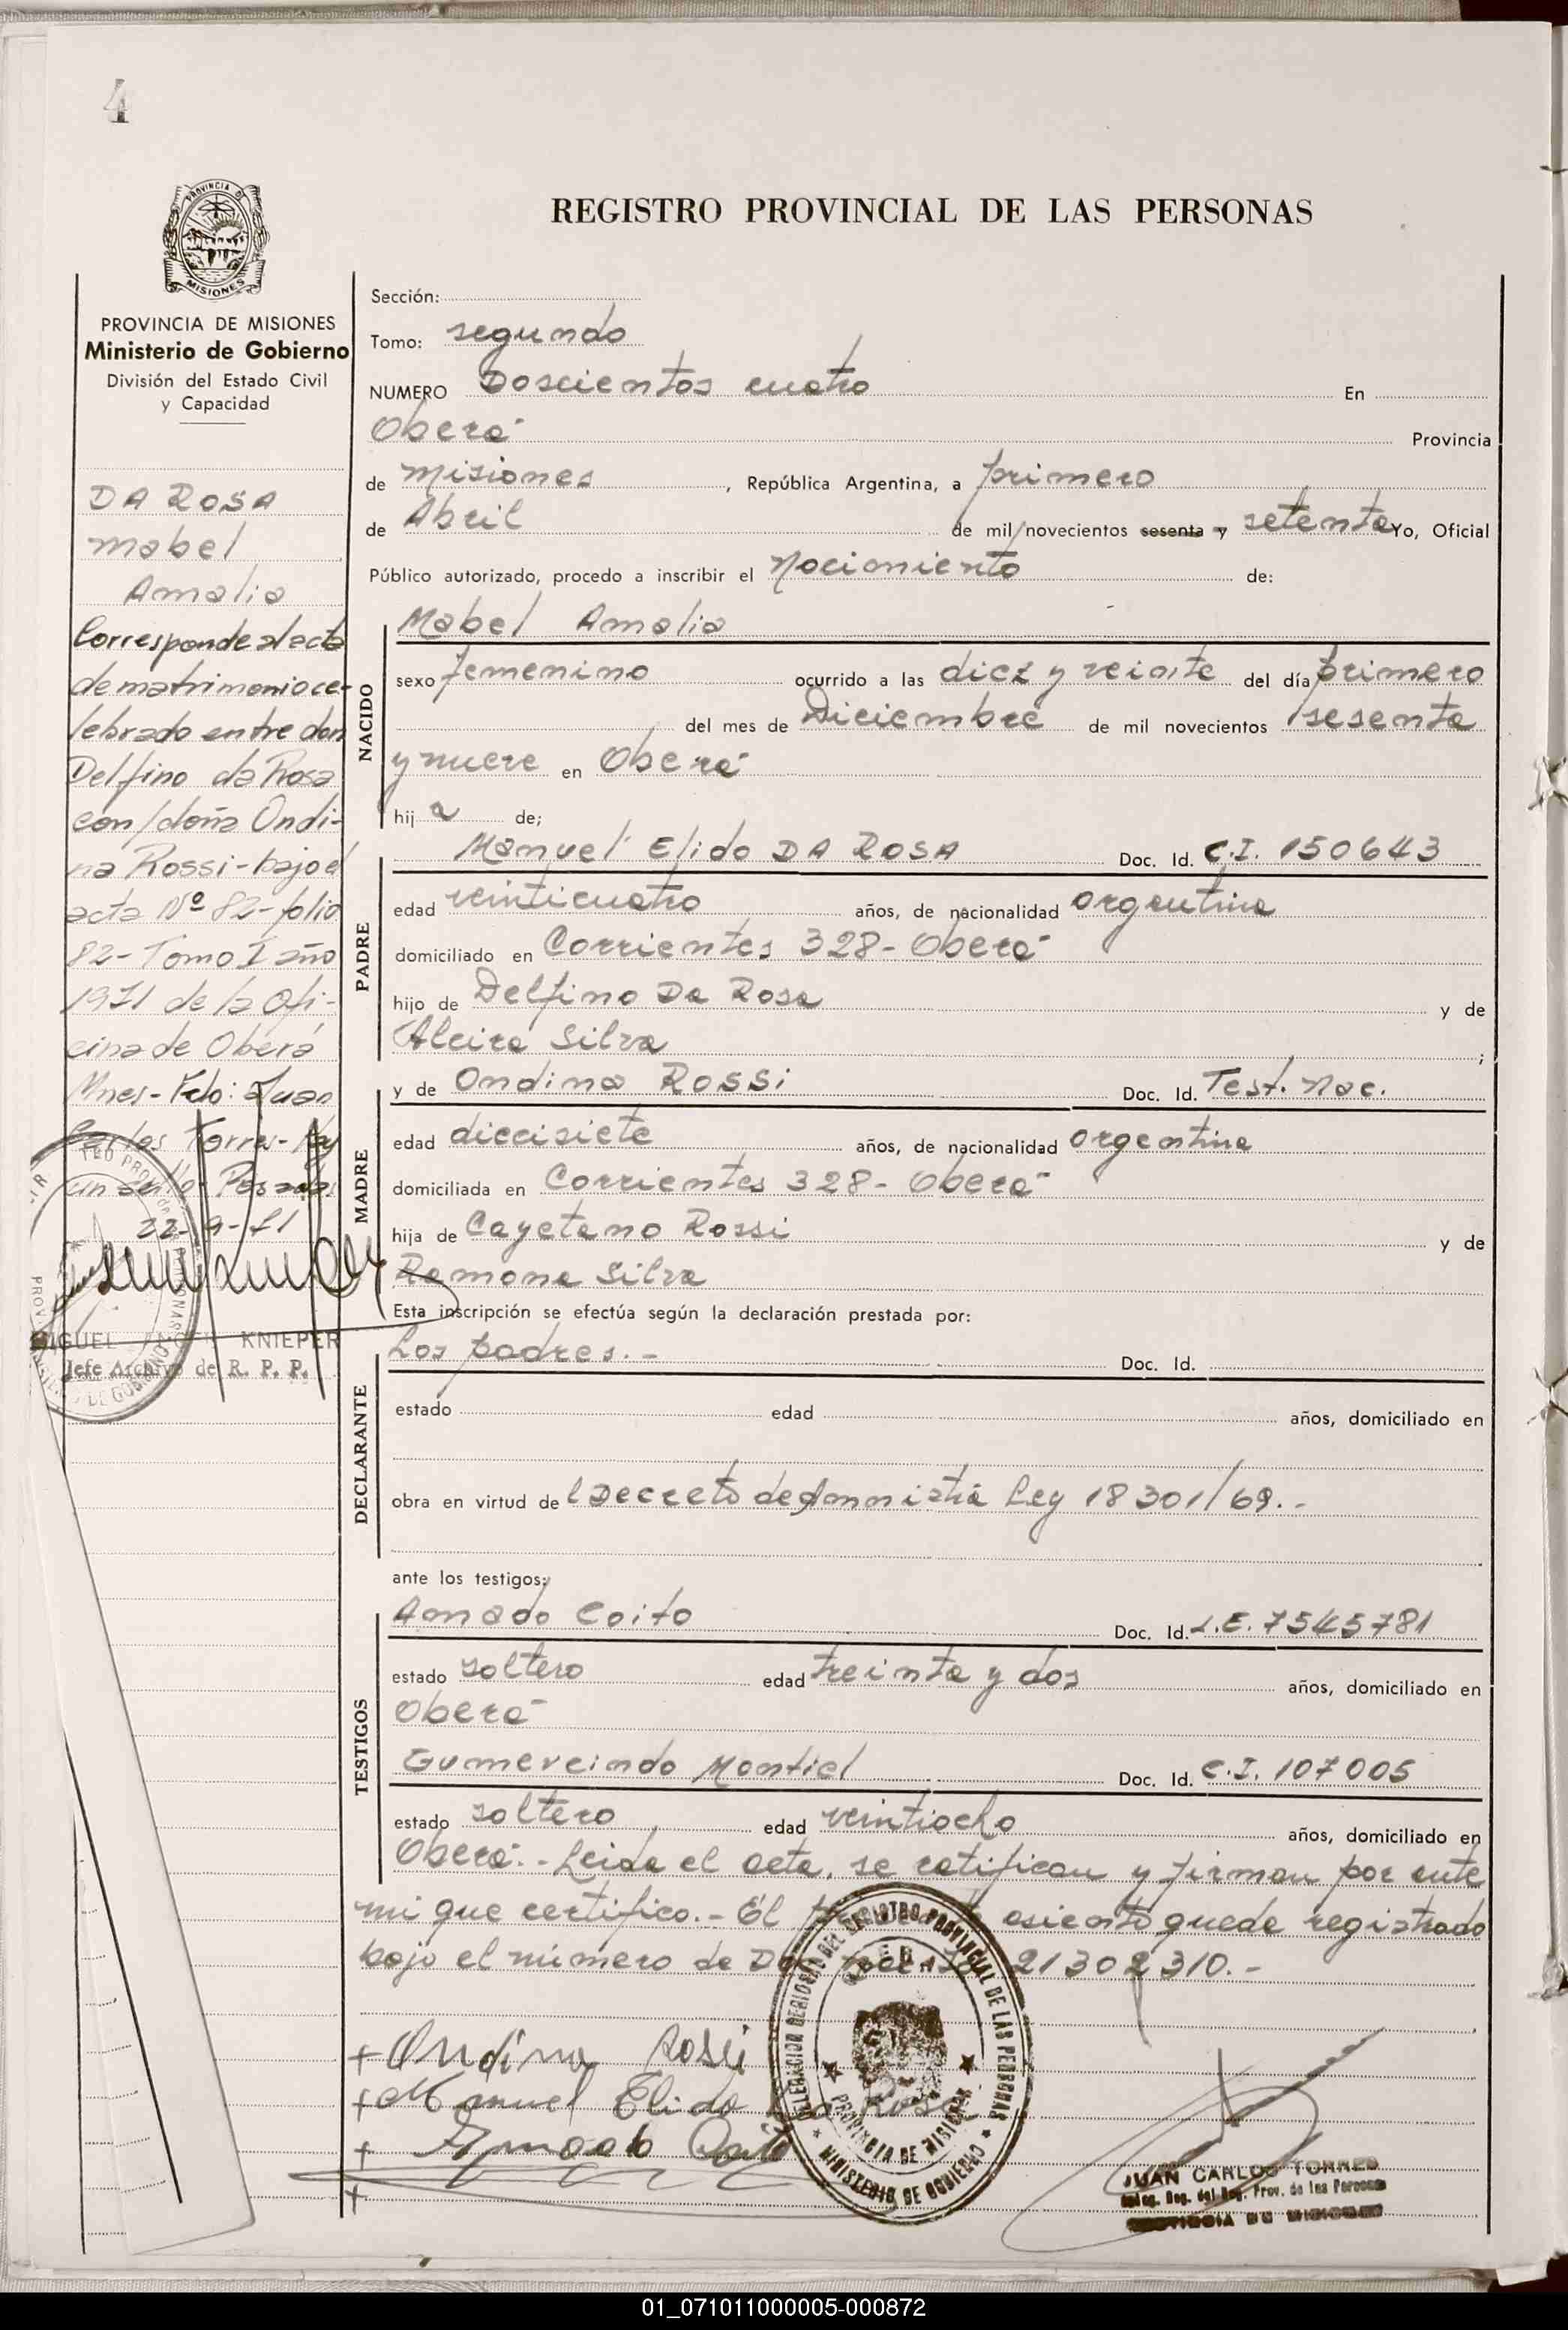 4
PROVINCIA DE
MISIONES
REGISTRO PROVINCIAL DE LAS PERSONAS
PROVINCIA DE MISIONES
Ministerio de Gobierno
División del Estado Civil
y Capacidad
DA ROSA
Mabel
Amalia
Corresponde al acta
de matrimonio ce-
lebrado entre don
Delfino da Rosa
con/doña Ondi-
na Rossi - bajo el
acta Nº 82 - folio
82 - Tomo I año
1971 de la Ofi-
cina de Oberá
Mnes - Fdo: Juan
Carlos Torres - Hay
un sello - Posadas
22-9-71
MIGUEL ANGEL KNIEPER
Jefe Archivo de R. P. P.
Sección:
Tomo: segundo
NUMERO Doscientos cuatro En
Oberá Provincia
de Misiones , República Argentina, a primero
de Abril de mil novecientos sesenta y setenta Yo, Oficial
Público autorizado, procedo a inscribir el Nacimiento de:
Mabel Amalia
NACIDO
sexo femenino ocurrido a las diez y veinte del día primero
del mes de Diciembre de mil novecientos sesenta
y nueve en Oberá
hij a de;
Manuel Elido DA ROSA Doc. Id. C.I. 150643
PADRE
edad veinticuatro años, de nacionalidad argentina
domiciliado en Corrientes 328 - Oberá
hijo de Delfino Da Rosa y de
Alcira Silva ;
y de Ondina ROSSI Doc. Id. Test. Nac.
MADRE
edad diecisiete años, de nacionalidad argentina
domiciliada en Corrientes 328 - Oberá
hija de Cayetano Rossi y de
Ramona Silva
Esta inscripción se efectúa según la declaración prestada por:
Los padres.- Doc. Id.
DECLARANTE
estado edad años, domiciliado en
obra en virtud de l Decreto de Amnistia Ley 18301/69.-
ante los testigos:
Amado Coito Doc. Id. L.E. 7545781
TESTIGOS
estado soltero edad treinta y dos años, domiciliado en
Oberá
Gumercindo Montiel Doc. Id. C.I. 107005
estado soltero edad veintiocho años, domiciliado en
Oberá.- Leida el acta, se ratifican y firman por ante
mi que certifico.- El asiento queda registrado
bajo el número de 21302310.-
+ Ondina Rossi
+ Manuel Elido Da Rosa
+ Amado Coito
+
PROVINCIA DE MISIONES
MINISTERIO DE GOBIERNO
JUAN CARLOS TORRES
Prov. de las Personas
PROVINCIA DE MISIONES
01_071011000005-000872